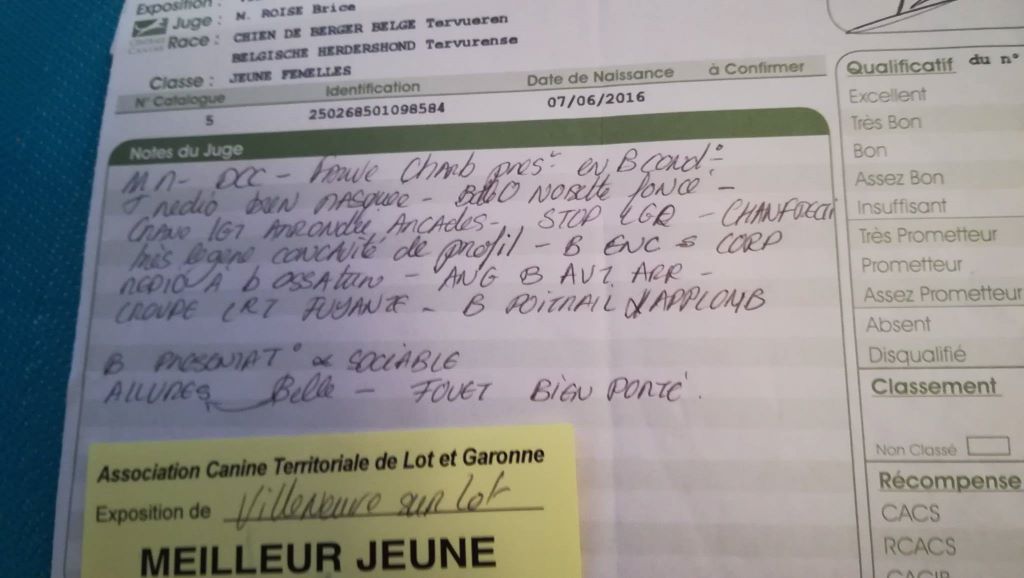 Exposition :
Juge : M. ROISE Brice
Race : CHIEN DE BERGER BELGE Tervueren
BELGISCHE HERDERSHOND Tervurense
Classe : JEUNE FEMELLES
N° Catalogue Identification Date de Naissance à Confirmer
5 250268501098584 07/06/2016
Notes du Juge
DCC - Fauve Charb pres en B cond°
medio bien masquée - noisette foncé -
crane LGT arrondie Arcades - STOP LGR - CHANFREIN
très légère concavité de profil - B ENC CORP
medio b ossature - ANG B AVT ARR -
CROUPE LRT FUYANTE - B POITRAIL & APPLOMB
B PRESENTAT° & SOCIABLE
ALLURES Belle - FOUET BIEN PORTÉ.
Association Canine Territoriale de Lot et Garonne
Exposition de Villeneuve sur Lot
MEILLEUR JEUNE
Qualificatif du n°
Excellent
Très Bon
Bon
Assez Bon
Insuffisant
Très Prometteur
Prometteur
Assez Prometteur
Absent
Disqualifié
Classement
Non Classé
Récompense
CACS
RCACS
CACIB